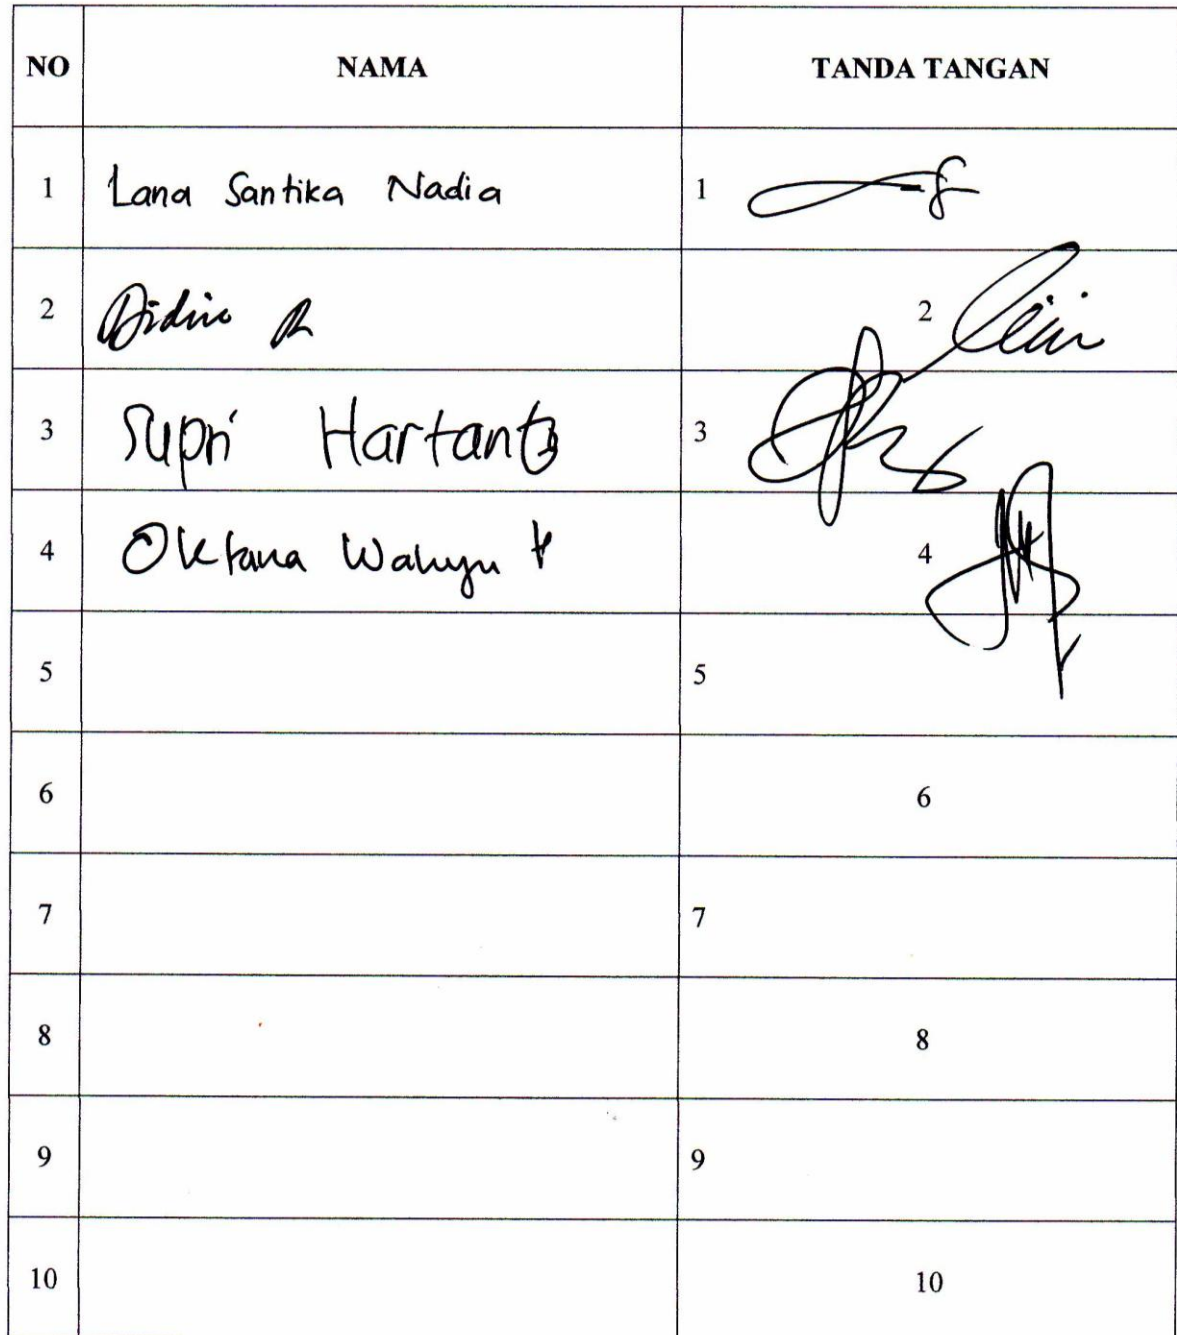 NO NAMA TANDA TANGAN
1 Lana Santika Nadia 1
2 Didin R 2
3 Supri Hartanto 3
4 Oktana Wahyu 4
5 5
6 6
7 7
8 8
9 9
10 10